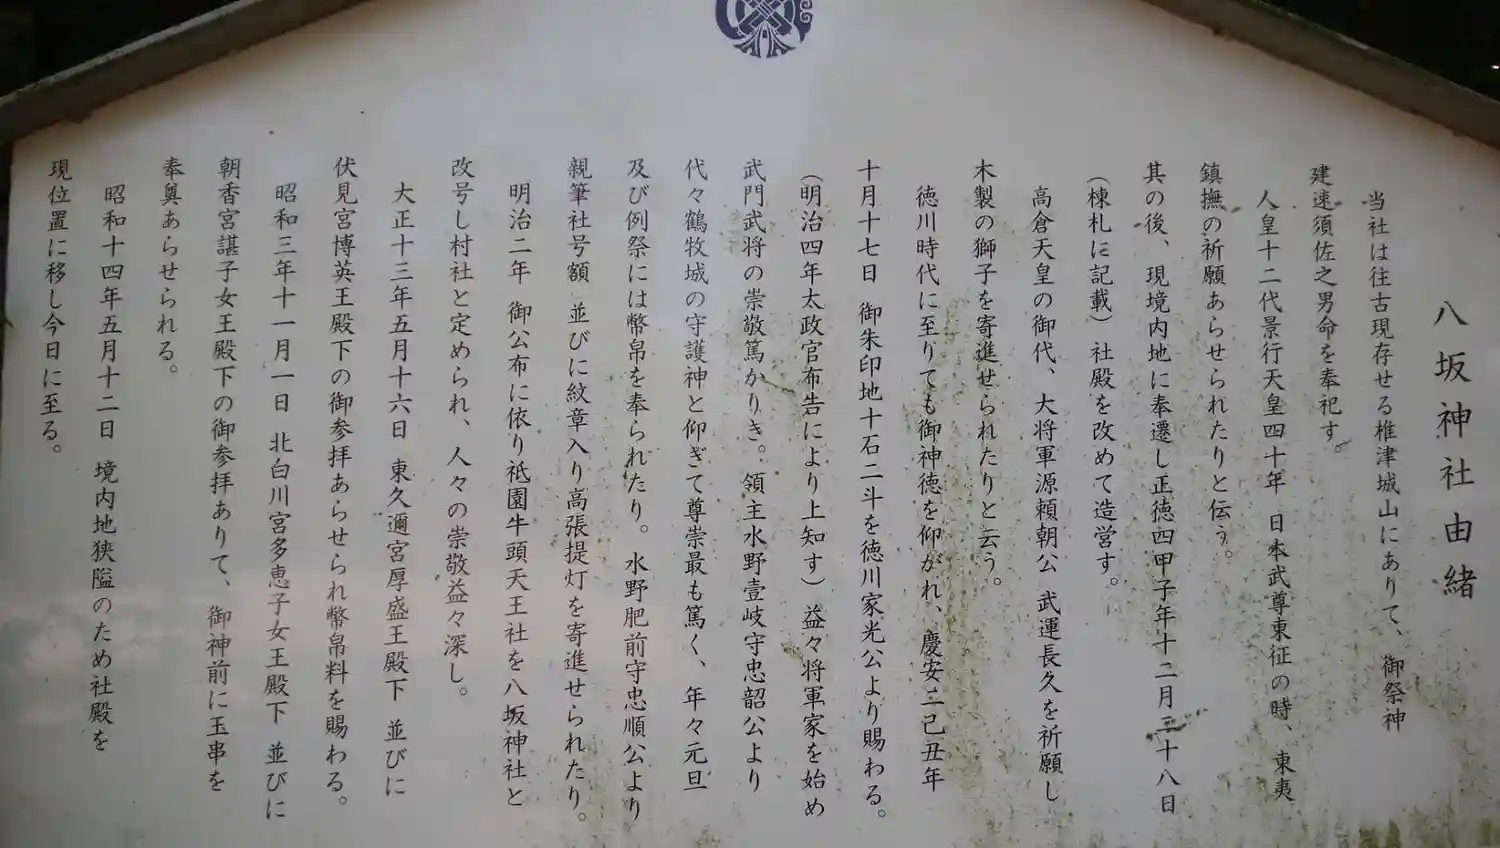 八坂神社由緒
当社は往古現存せる椎津城山にありて、御祭神
建速須佐之男命を奉祀す。
人皇十二代景行天皇四十年 日本武尊東征の時、東夷
鎮撫の祈願あらせられたりと伝う。
其の後、現境内地に奉遷し正徳四甲子年十二月二十八日
(棟札に記載)社殿を改めて造営す。
高倉天皇の御代、大将軍源頼朝公 武運長久を祈願し
木製の獅子を寄進せられたりと云う。
徳川時代に至りても御神徳を仰がれ、慶安二己丑年
十月十七日 御朱印地十石二斗を徳川家光公より賜わる。
(明治四年太政官布告により上知す)益々将軍家を始め
武門武将の崇敬篤かりき。領主水野壹岐守忠韶公より
代々鶴牧城の守護神と仰ぎて尊崇最も篤く、年々元旦
及び例祭には幣帛を奉られたり。水野肥前守忠順公より
親筆社号額 並びに紋章入り高張提灯を寄進せられたり。
明治二年 御公布に依り祇園牛頭天王社を八坂神社と
改号し村社と定められ、人々の崇敬益々深し。
大正十三年五月十六日 東久邇宮厚盛王殿下 並びに
伏見宮博英王殿下の御参拝あらせられ幣帛料を賜わる。
昭和三年十一月一日 北白川宮多恵子女王殿下 並びに
朝香宮諶子女王殿下の御参拝ありて、御神前に玉串を
奉奠あらせられる。
昭和十四年五月十二日 境内地狭隘のため社殿を
現位置に移し今日に至る。